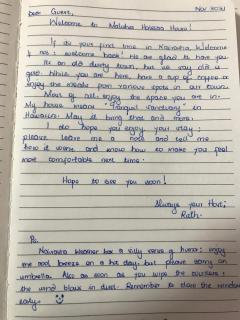 Nov 2021
Dear Guest,
Welcome to Maluhia Havana House!
If its your first time in Kaiwaira, Welcome
if not; welcome back! We are glad to have you
Its an old dusty town but we say old is
gold. While you are here have a cup of coffee or
enjoy the meals from various spots in our town.
Most of all; enjoy the space you are in.
My house means "Tranquil Sanctuary" in
Hawaiian. May it bring that and more.
I do hope you enjoy your stay;
please leave me a note and tell me
how it went and know how to make you feel
most comfortable next time.
Hope to see you soon!
Always your Host;
Ruth.
Ps.
weather has a silly sense of humor; enjoy
the cool breeze on a hot day but please carry an
umbrella. Also as soon as you wipe the counters;
the wind blows in dust. Remember to close the windows
early.